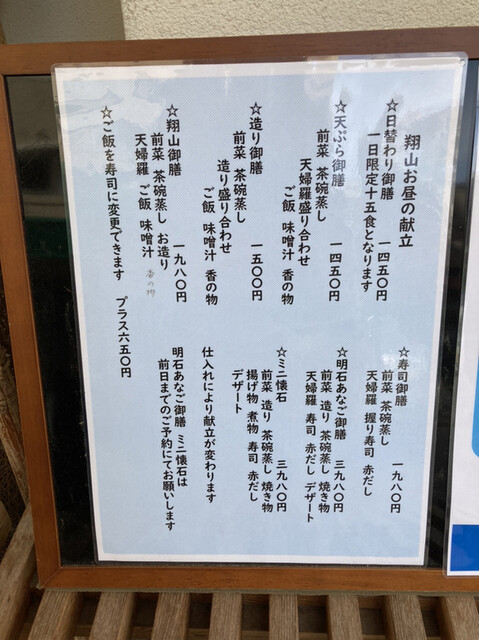 翔山お昼の献立
☆日替わり御膳 一四五〇円
一日限定十五食となります
☆天ぷら御膳 一四五〇円
前菜 茶碗蒸し
天婦羅盛り合わせ
ご飯 味噌汁 香の物
☆造り御膳 一五〇〇円
前菜 茶碗蒸し
造り盛り合わせ
ご飯 味噌汁 香の物
☆翔山御膳 一九八〇円
前菜 茶碗蒸し お造り
天婦羅 ご飯 味噌汁 香の物
☆ご飯を寿司に変更できます プラス六五〇円
☆寿司御膳 一九八〇円
前菜 茶碗蒸し
天婦羅 握り寿司 赤だし
☆明石あなご御膳 三九八〇円
前菜 造り 茶碗蒸し 焼き物
天婦羅 寿司 赤だし デザート
☆ミニ懐石 三九八〇円
前菜 造り 茶碗蒸し 焼き物
揚げ物 煮物 寿司 赤だし
デザート
仕入れにより献立が変わります
明石あなご御膳 ミニ懐石は
前日までのご予約にてお願いします